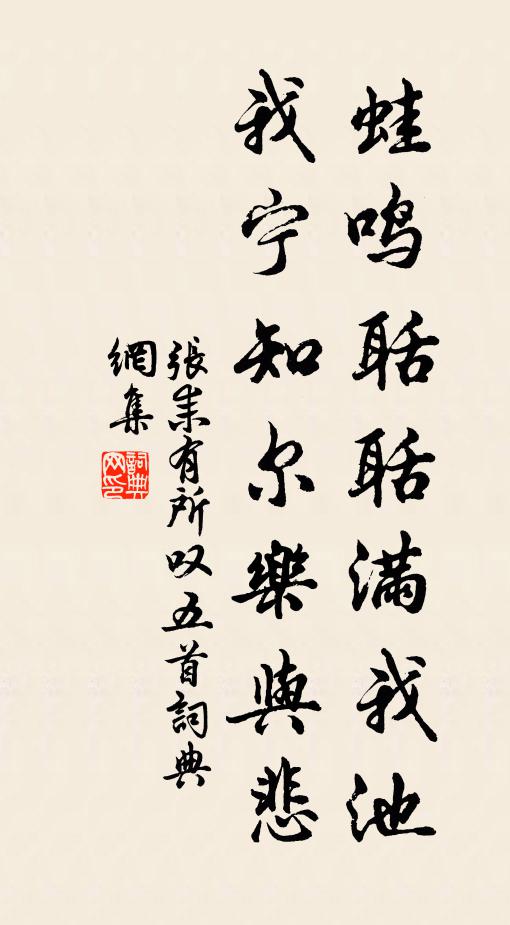 蛙鸣聒聒满我池
我宁知尔樂與悲
張耒有所叹五首詞典
網集
詞典網印